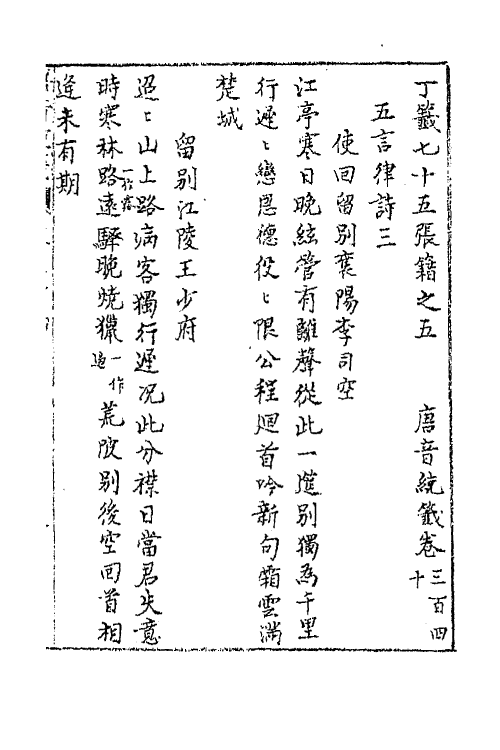 丁籤七十五張籍之五　唐音統籤卷三百四十
五言律詩三
使回留別襄陽李司空
江亭寒日晚絃管有離聲從此一筵別獨為千里
行遲〻戀恩德役〻限公程迴首吟新句霜雲滿
楚城
留別江陵王少府
迢〻山上路病客獨行遲况此分襟日當君失意
時寒林路遠驛晚燒獵一作過荒陂別後空回首相
逢未有期